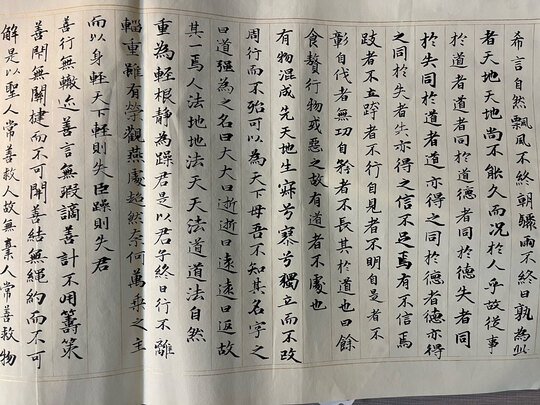 希言自然飄風不終朝驟雨不終日孰為此
者天地天地尚不能久而況於人乎故從事
於道者道者同於道德者同於德失者同
於失同於道者道亦得之同於德者德亦得
之同於失者失亦得之信不足焉有不信焉
跂者不立跨者不行自見者不明自是者不
彰自伐者無功自矜者不長其於道也曰餘
食贅行物或惡之故有道者不處也
有物混成先天地生寂兮寥兮獨立而不改
周行而不殆可以為天下母吾不知其名字之
曰道強為之名曰大大曰逝逝曰遠遠曰返故
其一焉人法地地法天天法道道法自然
重為輕根靜為躁君是以君子終日行不離
輜重雖有榮觀燕處超然奈何萬乘之主
而以身輕天下輕則失臣躁則失君
善行無轍迹善言無瑕謫善計不用籌策
善閉無關楗而不可開善結無繩約而不可
解是以聖人常善救人故無棄人常善救物